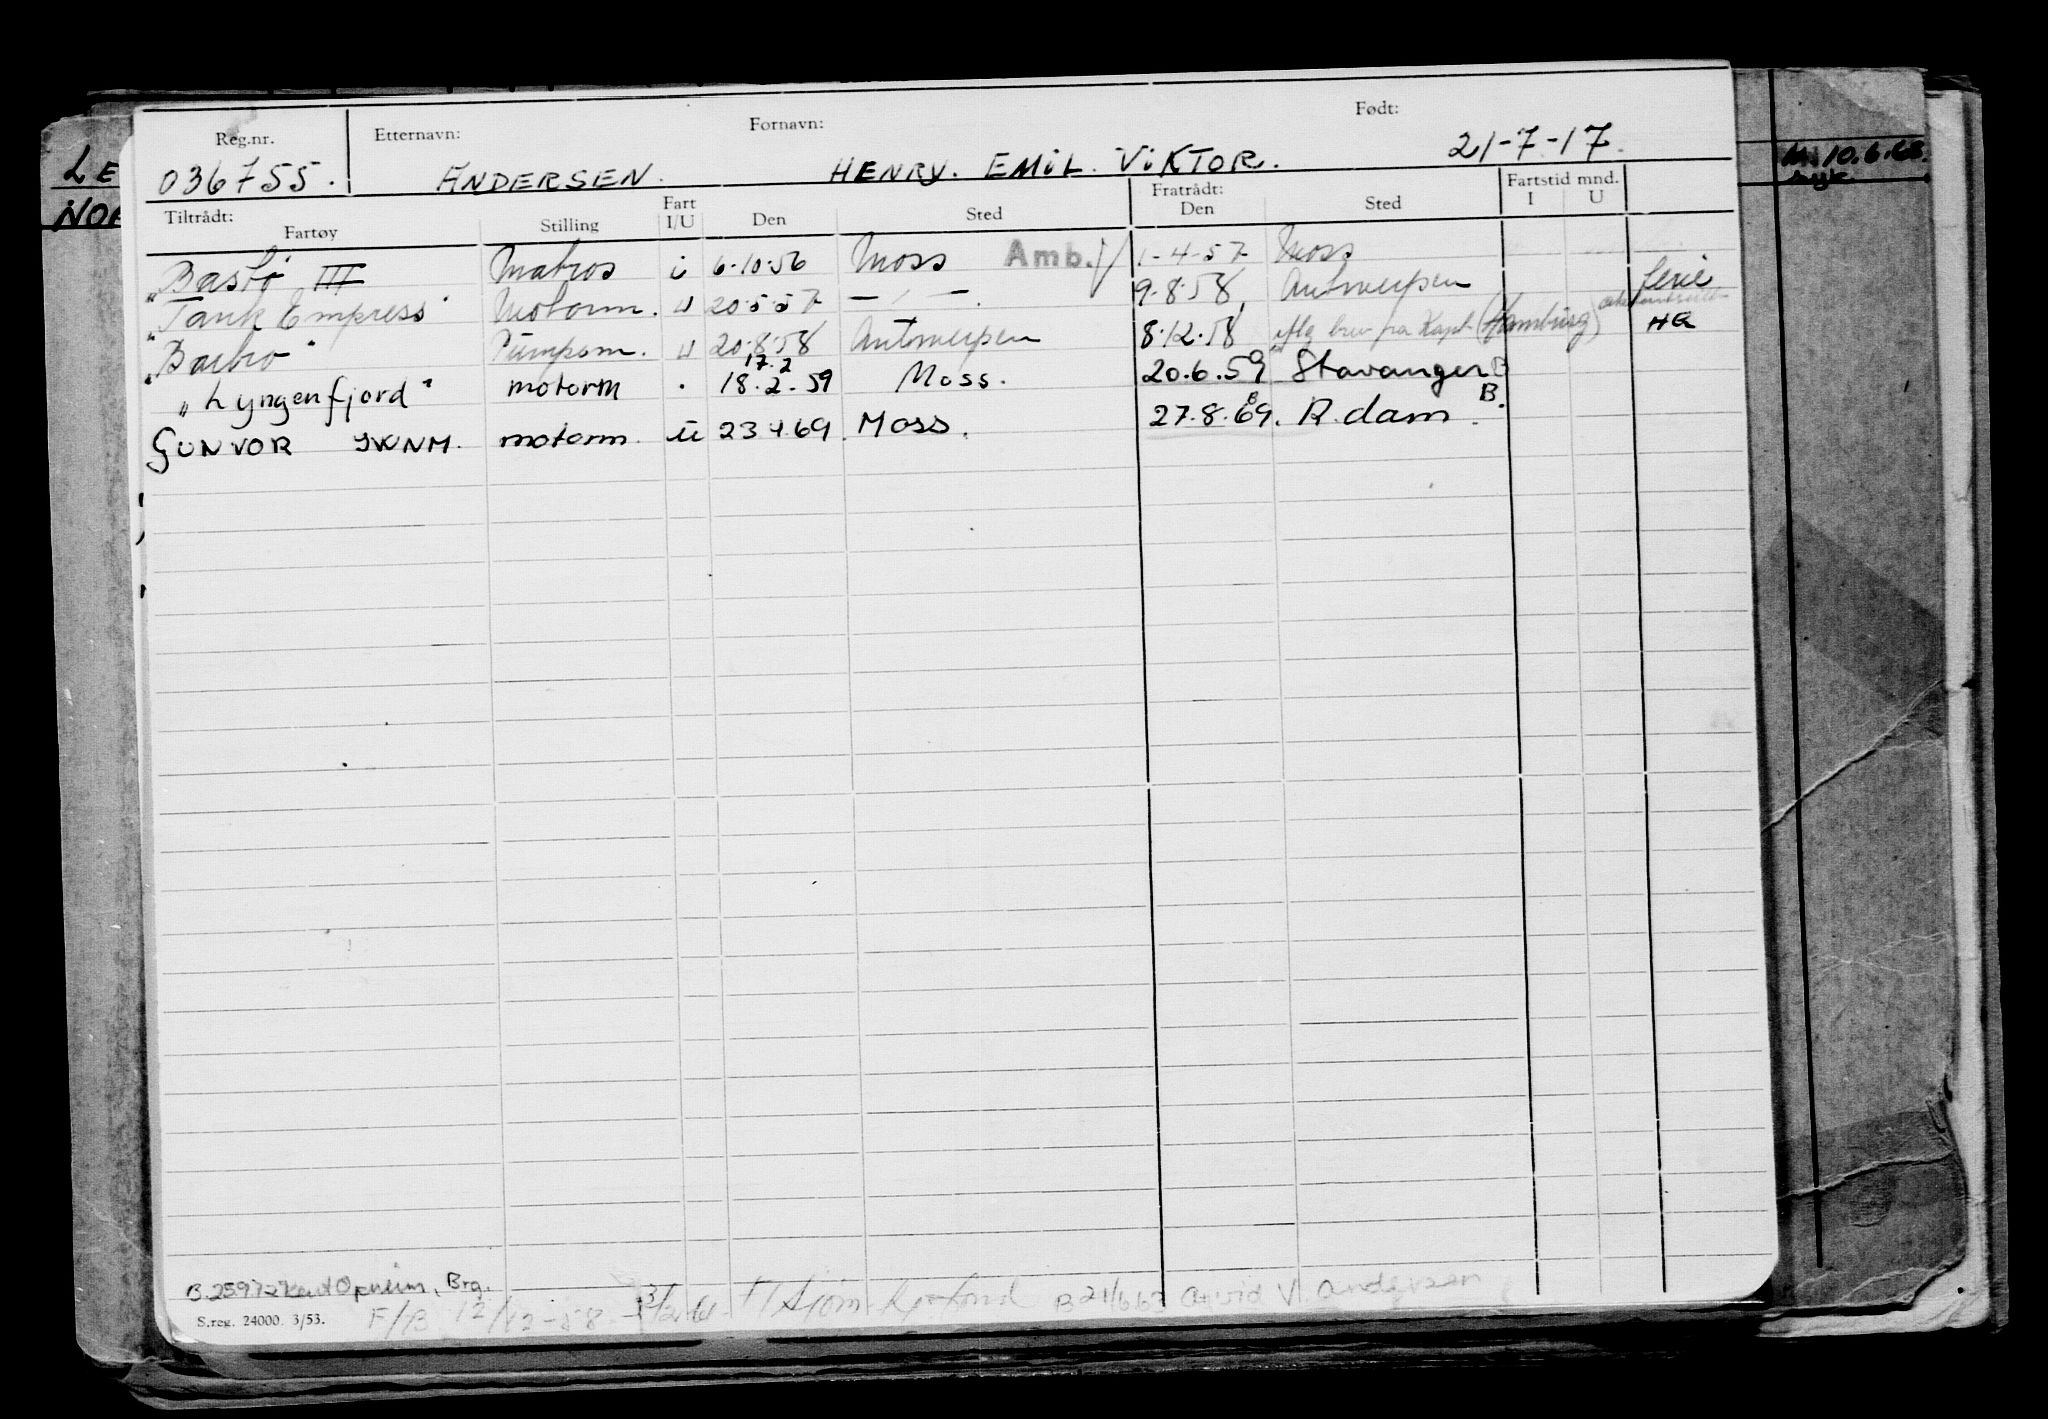 LE
NOR
Reg.nr. Etternavn: Fornavn: Født:
036755. ANDERSEN. HENRY. EMIL. VIKTOR. 21-7-17.
10.6.68.
Tiltrådt: Fratrådt: Fartstid mnd.
Fartøy Stilling Fart I/U Den Sted Den Sted I U
"Bastø III Matros i 6.10.56 Moss Amb. 1-4-57 Moss
"Tank Empress" Motorm. u 20.5.57 — " — 9.8.58 Antwerpen ferie
"Barbro" Pumpem. u 20.8.58 Antwerpen 8.12.58 iflg brev fra Kapt. (Hamburg) HG
17.2
"Lyngenfjord" motorm . 18.2.59 Moss. 20.6.59 Stavanger B
GUNVOR JWNM. motorm. u 23.4.69. Moss. 27.8.69. R.dam. B.
B.25972 Opheim, Brg.
S.reg. 24000. 3/53. F/B 12/12-58 B 21/6.63 Arvid V. Andersen